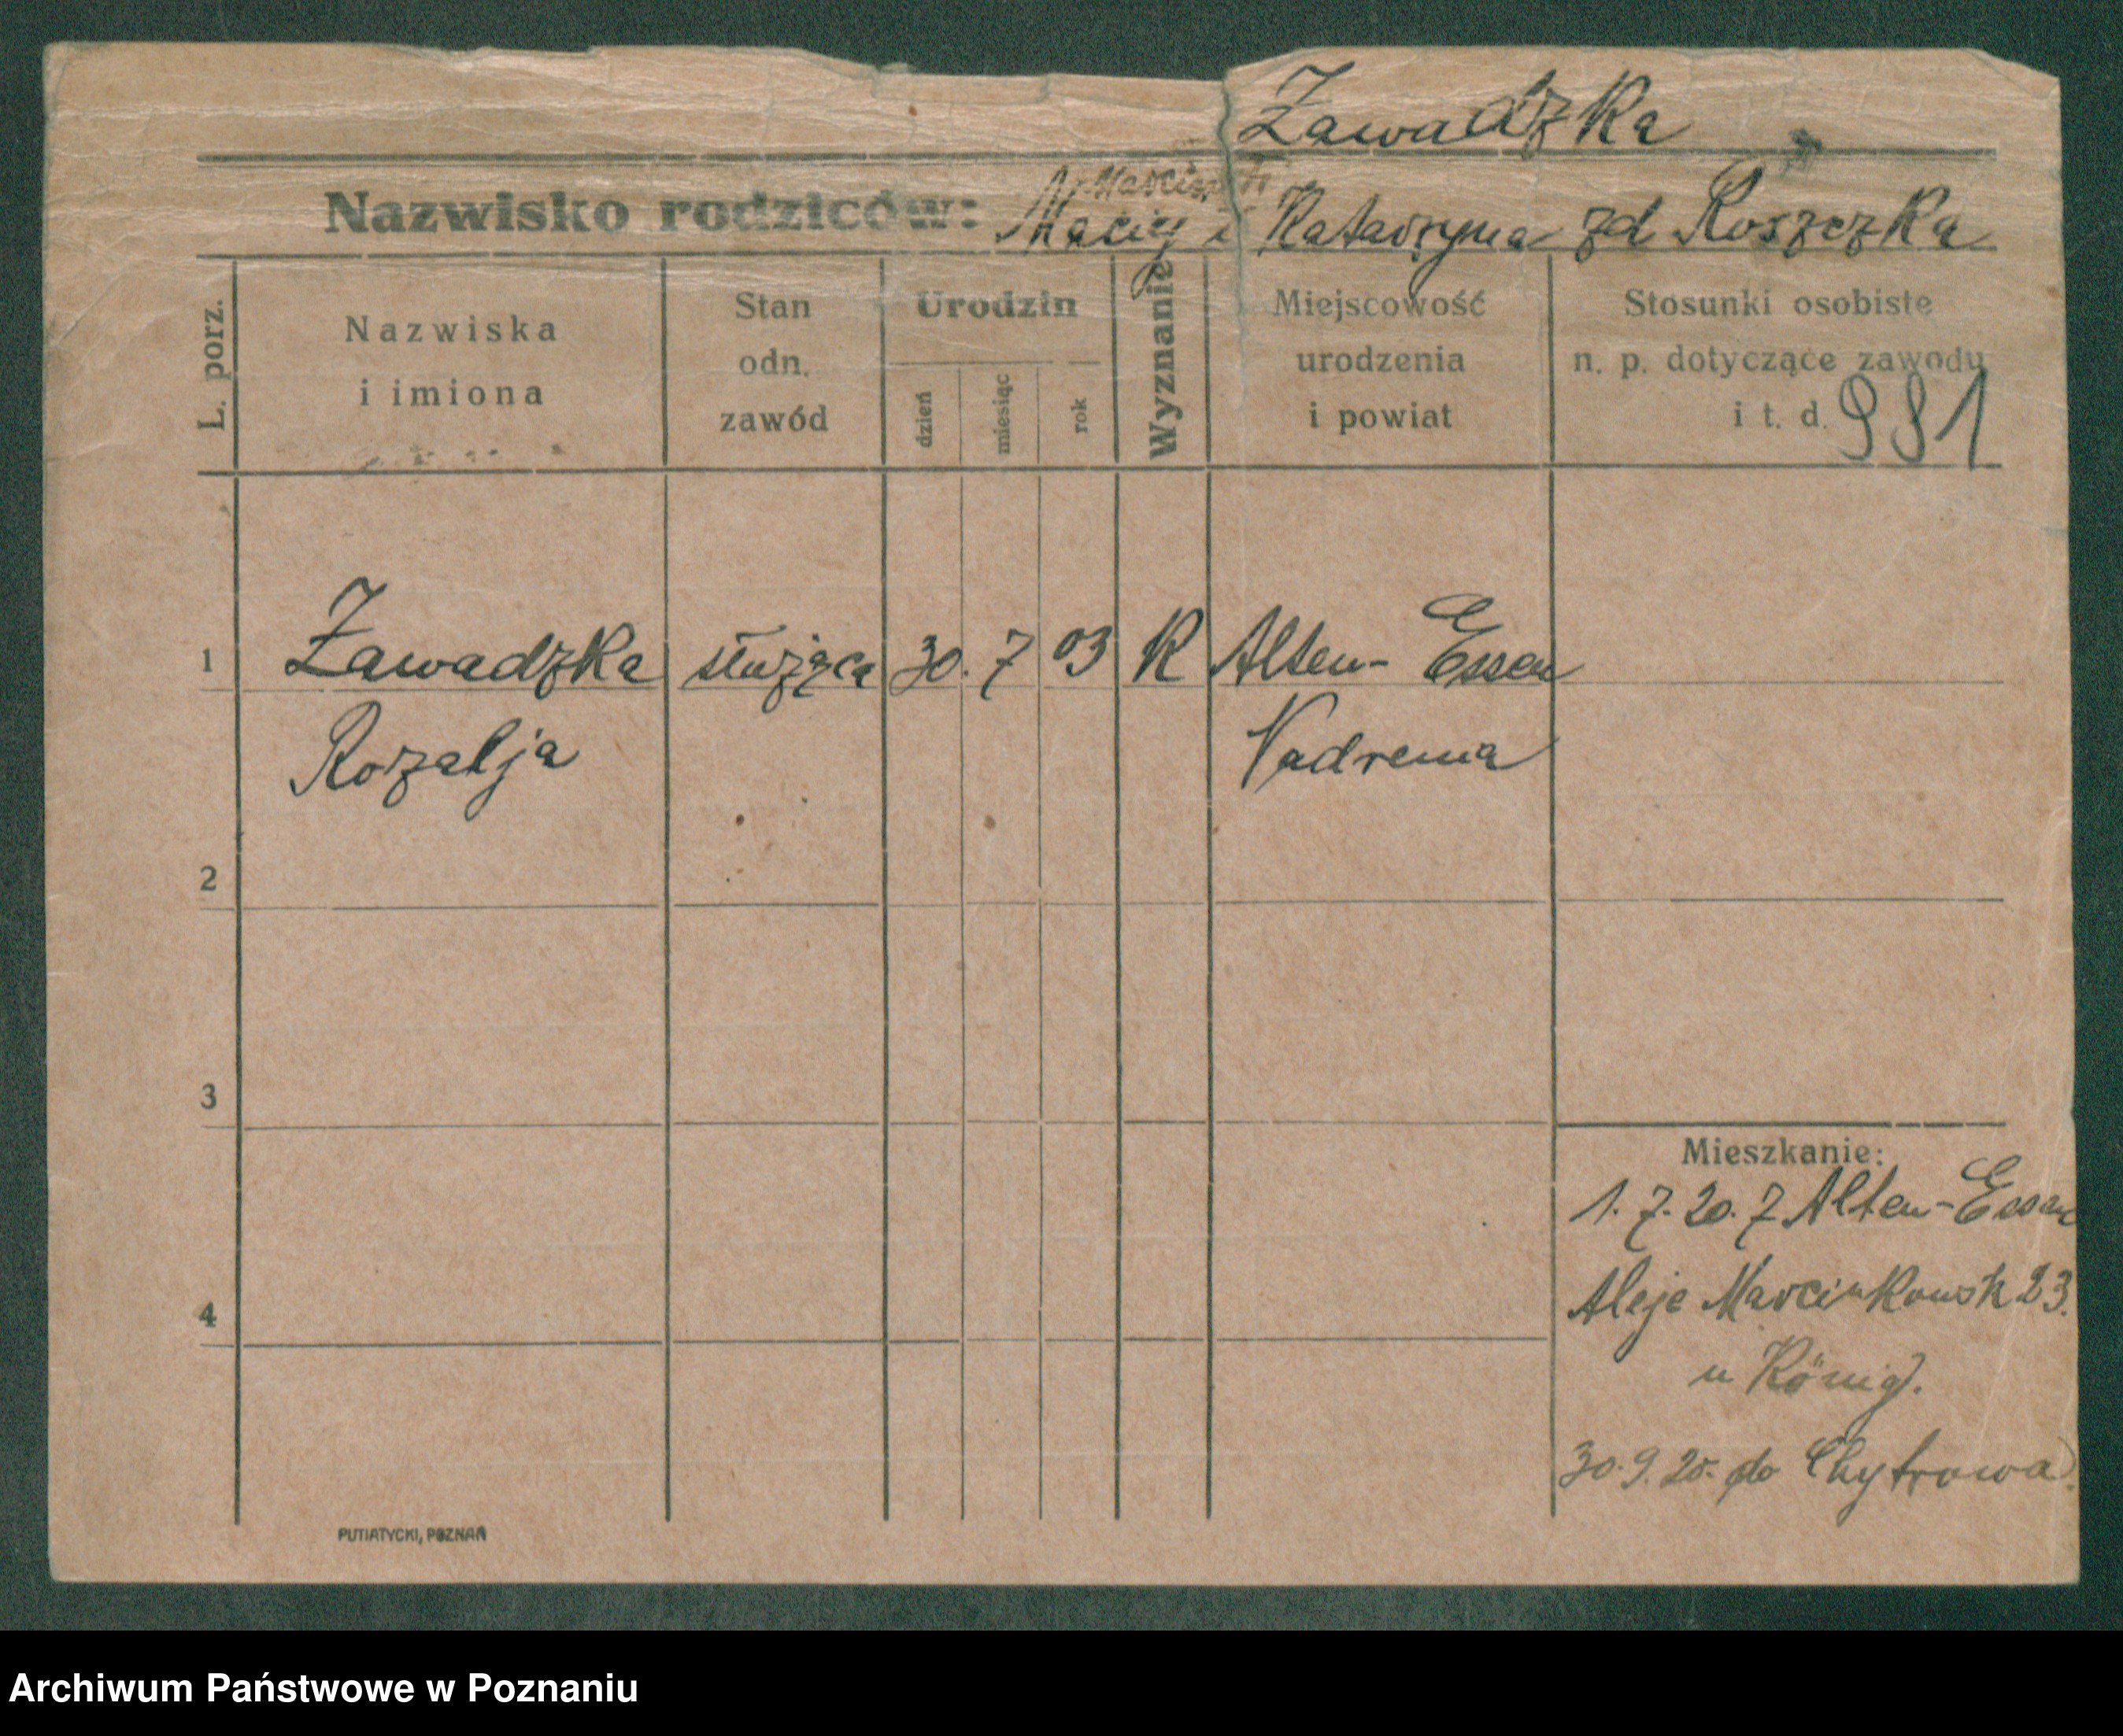 Zawadzka
Marcin
Nazwisko rodziców: Maciej i Katarzyna zd Roszczka
L. porz.
Nazwiska
i imiona
Stan
odn.
zawód
Urodzin
dzień
miesiąc
rok
Wyznanie
Miejscowość
urodzenia
i powiat
Stosunki osobiste
n. p. dotyczące zawodu
i t. d.
981
1 Zawadzka służąca 30. 7 03 K Alten-Essen
Rozalja Nadrenia
2
3
4
Mieszkanie:
1. 7. 20. z Alten-Essen
Aleje Marcinkowsk 23.
u König.
30. 9. 20. do Chytrowa
PUTIATYCKI, POZNAŃ
Archiwum Państwowe w Poznaniu